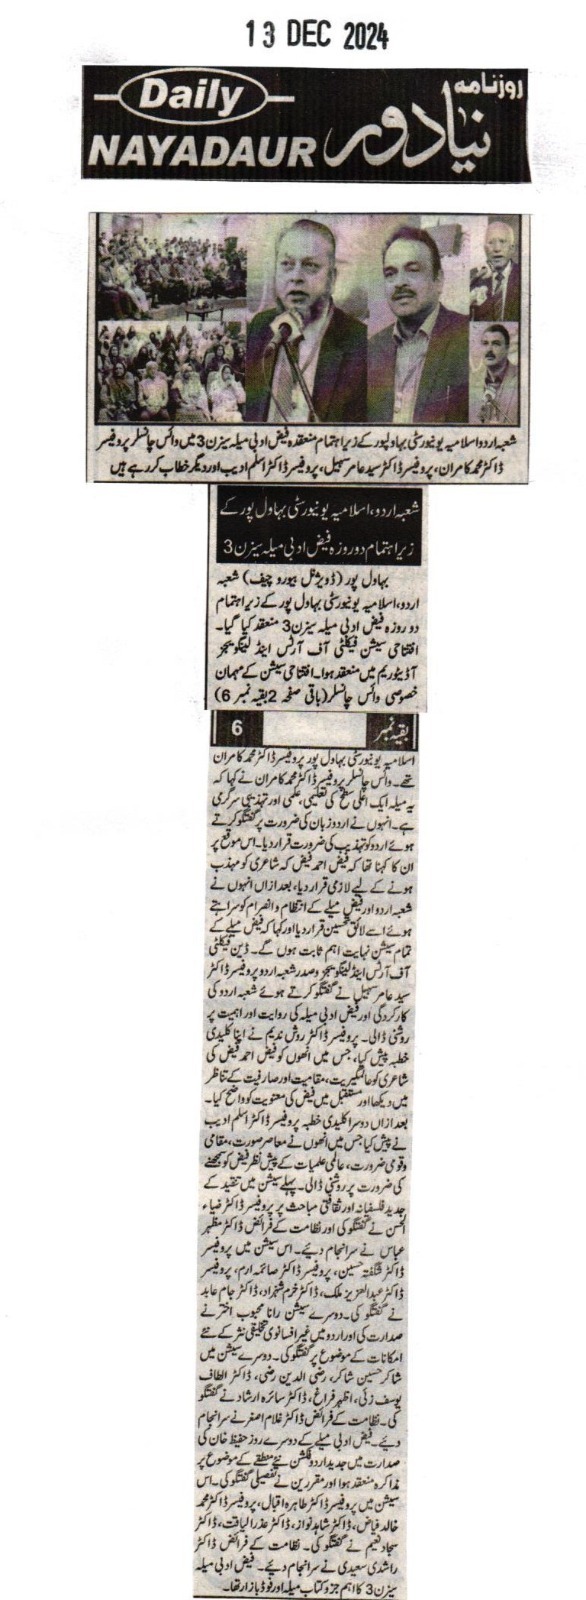 13 DEC 2024
Daily
NAYADAUR
روزنامہ
نیا دور
شعبہ اردو اسلامیہ یونیورسٹی بہاولپور کے زیر اہتمام منعقدہ فیض ادبی میلہ سیزن 3 میں وائس چانسلر پروفیسر
ڈاکٹر محمد کامران، پروفیسر ڈاکٹر سید عامر سہیل، پروفیسر ڈاکٹر اسلم ادیب اور دیگر خطاب کر رہے ہیں
شعبہ اردو، اسلامیہ یونیورسٹی بہاول پور کے
زیر اہتمام دو روزہ فیض ادبی میلہ سیزن 3
بہاول پور (ڈویژنل بیورو چیف) شعبہ
اردو، اسلامیہ یونیورسٹی بہاول پور کے زیر اہتمام
دو روزہ فیض ادبی میلہ سیزن 3 منعقد کیا گیا۔
افتتاحی سیشن فیکلٹی آف آرٹس اینڈ لینگویجز
آڈیٹوریم میں منعقد ہوا۔ افتتاحی سیشن کے مہمان
خصوصی وائس چانسلر (باقی صفحہ 2 بقیہ نمبر 6)
بقیہ نمبر 6
اسلامیہ یونیورسٹی بہاول پور پروفیسر ڈاکٹر محمد کامران
تھے۔ وائس چانسلر پروفیسر ڈاکٹر محمد کامران نے کہا کہ
یہ میلہ ایک اعلی سطح کی تعلیمی، علمی اور تہذیبی سرگرمی
ہے۔ انہوں نے اردو زبان کی ضرورت پر گفتگو کرتے
ہوئے اردو کو تہذیب کی ضرورت قرار دیا۔ اس موقع پر
ان کا کہنا تھا کہ فیض احمد فیض کہ شاعری کو مہذب
ہونے کے لیے لازمی قرار دیا، بعد ازاں انہوں نے
شعبہ اردو اور فیض میلے کے انتظام و انصرام کو سراہتے
ہوئے اسے لائق تحسین قرار دیا اور کہا کہ فیض میلے کے
تمام سیشن نہایت اہم ثابت ہوں گے۔ ڈین فیکلٹی
آف آرٹس اینڈ لینگویجز و صدر شعبہ اردو پروفیسر ڈاکٹر
سید عامر سہیل نے گفتگو کرتے ہوئے شعبہ اردو کی
کارکردگی اور فیض ادبی میلہ کی روایت اور اہمیت پر
روشنی ڈالی۔ پروفیسر ڈاکٹر روش ندیم نے اپنا کلیدی
خطبہ پیش کیا، جس میں انھوں نے فیض احمد فیض کی
شاعری کو عالمگیریت، مقامیت اور صارفیت کے تناظر
میں دیکھا اور مستقبل میں فیض کی معنویت کو واضح کیا۔
بعد ازاں دوسرا کلیدی خطبہ پروفیسر ڈاکٹر اسلم ادیب
نے پیش کیا جس میں انھوں نے معاصر صورت، مقامی
و قومی ضرورت، عالمی علمیات کے پیش نظر فیض کو سمجھنے
کی ضرورت پر روشنی ڈالی۔ پہلے سیشن میں تنقید کے
جدید فلسفیانہ اور ثقافتی مباحث پر پروفیسر ڈاکٹر ضیاء
الحسن نے گفتگو کی اور نظامت کے فرائض ڈاکٹر مظہر
عباس نے سرانجام دیئے۔ اس سیشن میں پروفیسر
ڈاکٹر شگفتہ حسین، پروفیسر ڈاکٹر صائمہ ارم، پروفیسر
ڈاکٹر عبدالعزیز ملک، ڈاکٹر خرم شہزاد، ڈاکٹر جام عابد
نے گفتگو کی۔ دوسرے سیشن رانا محبوب اختر نے
صدارت کی اور اردو میں غیر افسانوی تخلیقی نثر کے نئے
امکانات کے موضوع پر گفتگو کی۔ دوسرے سیشن میں
شاکر حسین شاکر، رضی الدین رضی، ڈاکٹر الطاف
یوسف زئی، اظہر فراغ، ڈاکٹر سائرہ ارشاد نے گفتگو
کی۔ نظامت کے فرائض ڈاکٹر غلام اصغر نے سرانجام
دیئے۔ فیض ادبی میلے کے دوسرے روز حفیظ خان کی
صدارت میں جدید اردو فکشن نئے منطقے کے موضوع پر
مذاکرہ منعقد ہوا اور مقررین نے تفصیلی گفتگو کی۔ اس
سیشن میں پروفیسر ڈاکٹر طاہرہ اقبال، پروفیسر ڈاکٹر محمد
خالد فیاض، ڈاکٹر شاہد نواز، ڈاکٹر عذرا لیاقت، ڈاکٹر
سجاد نعیم نے گفتگو کی۔ نظامت کے فرائض ڈاکٹر
راشدی سعیدی نے سرانجام دیے۔ فیض ادبی میلہ
سیزن 3 کا اہم جزو کتاب میلہ اور فوڈ بازار تھا۔